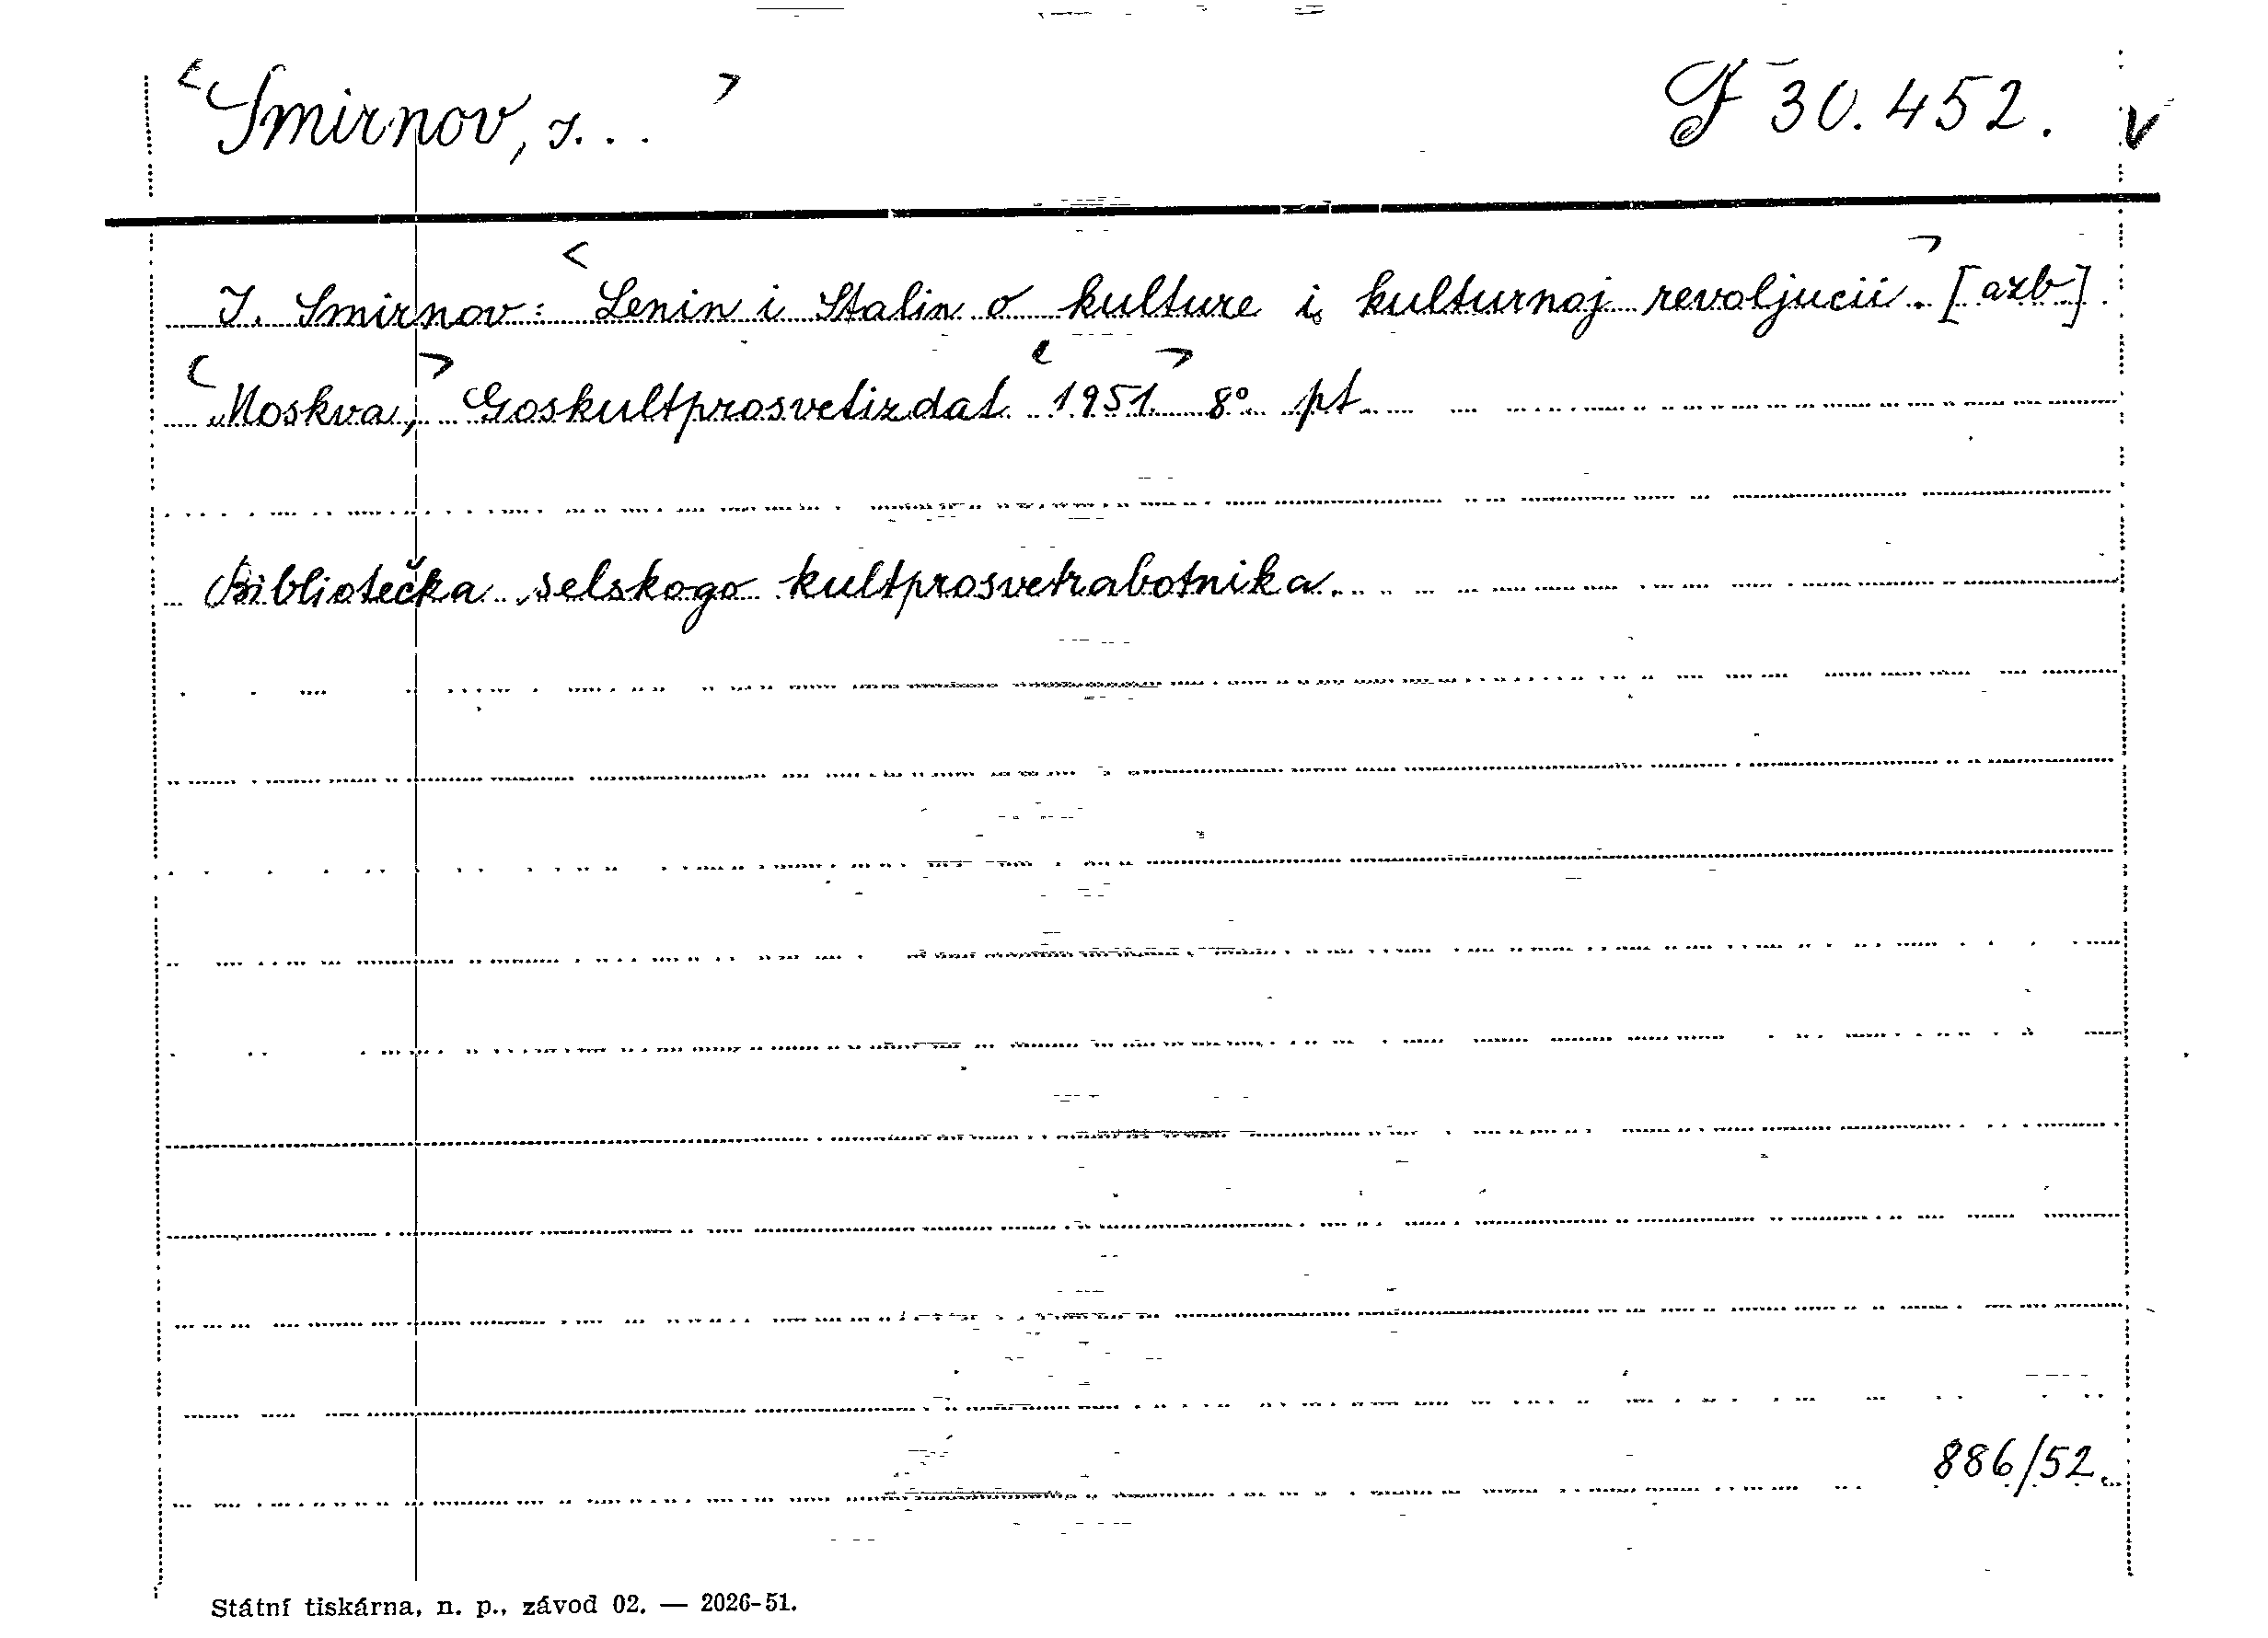 <Smirnov, I... > F 30.452. v
I. Smirnov: <Lenin i Stalin o kulture i kulturnoj revoljucii.> [azb].
<Moskva,> Goskultprosvetizdat <1951> 8° pt
Bibliotečka selskogo kultprosvetrabotnika.
886/52.
Státní tiskárna, n. p., závod 02. — 2026-51.